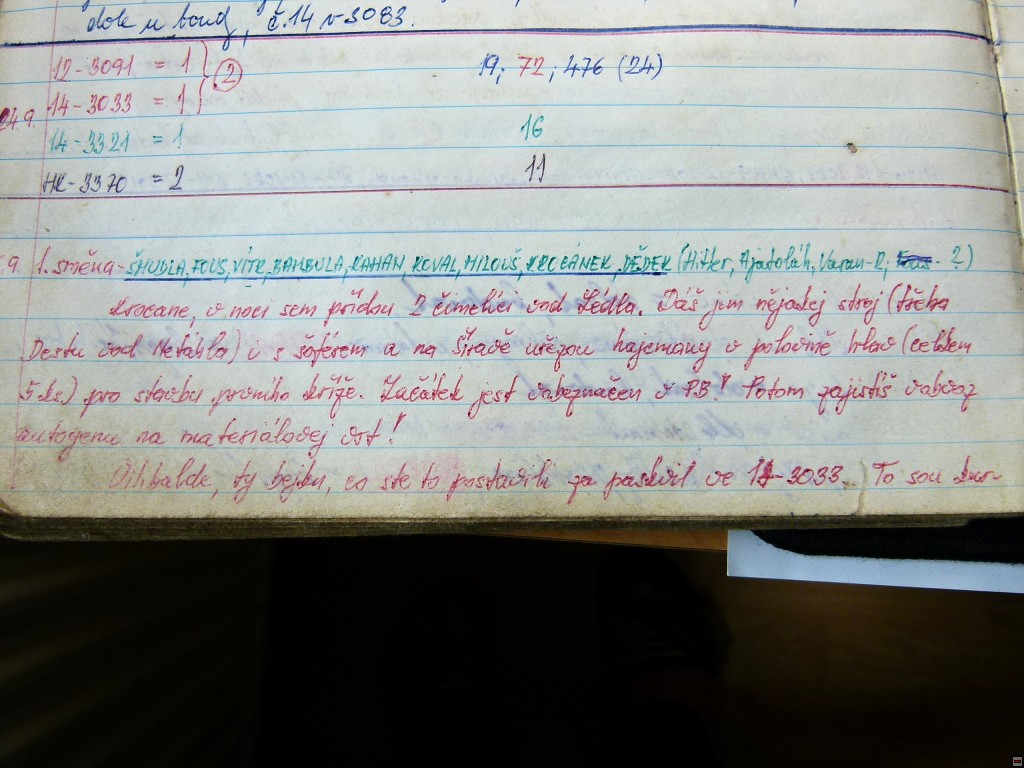 dole u boud, č.14 v 3083.
12-3091 = 1 2 19; 72; 476 (24)
24.9. 14-3033 = 1
14-3321 = 1 16
HK-3370 = 2 11
.9. 1. směna - ŠMUDLA, FOUS, VÍTR, BAMBULA, KAHAN, KOVAL, MILOUŠ, KROCÁNEK, DĚDEK (Hitler, Ajatoláh, Varan-R, 2)
Krocane, v noci sem přídou 2 čimelíci vod Sédla. Dáš jim nějakej stroj (třeba
Destu vod Netahla) i s šoférem a na Šíravě uřežou hajcmany v polovině hlav (celkem
5 ks.) pro stavbu prvního kříže. Začátek jest vobeznačen v P.B.! Potom zajistíš vodvoz
autogenu na materiálovej vrt!
Vilibalde, ty bejku, co ste to postavili za paskvil ve 14-3033. To sou kur-